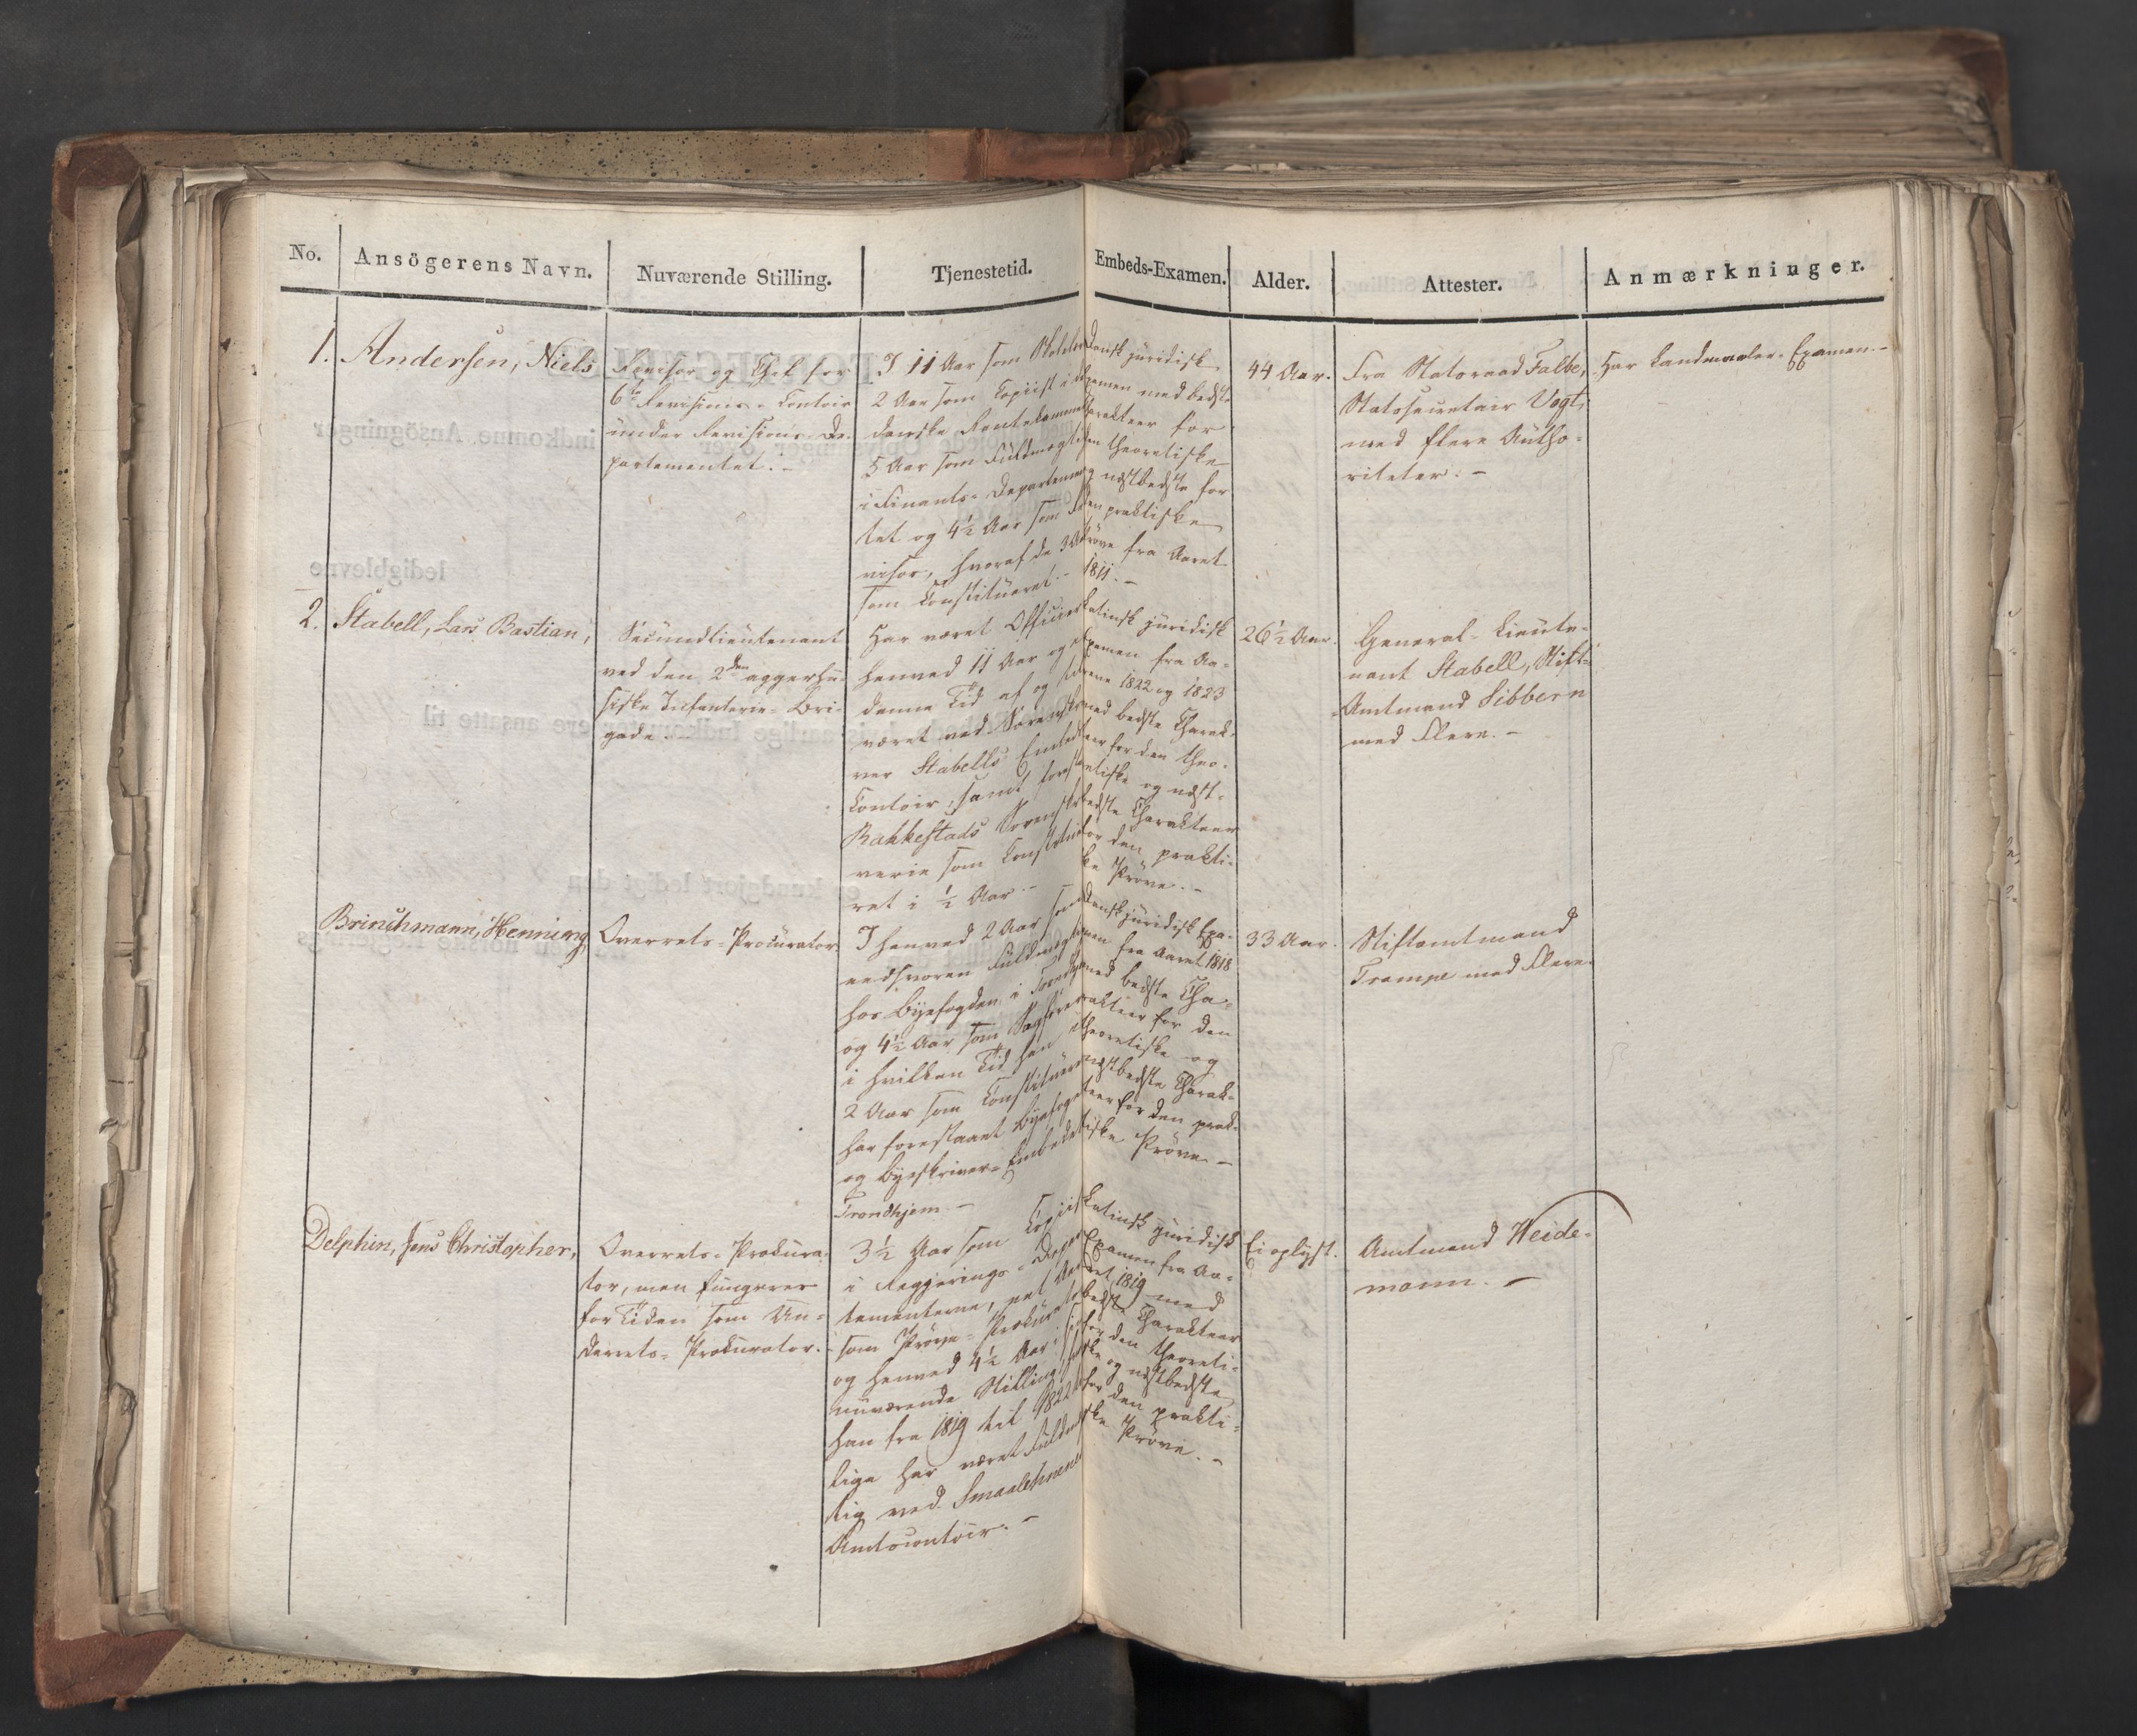 No.
Ansögerens Navn.
Nuværende Stilling.
Tjenestetid.
Embeds-Examen.
Alder.
Attester.
Anmærkninger.
1.
Andersen, Niels
Revisor og Chef for
6te Revisions-Contoir
under Revisions-De-
partementet. -
I 11 Aar som
2 Aar som Copiist i det
danske Rentekammer
5 Aar som Fuldmægtig
i Finants-Departemen-
tet og 4½ Aar som Re-
visor, hvoraf de 3 Aar
som Constitueret. -
Dansk juridisk
Examen med bedste
Charakteer for
den theoretiske
og næstbedste for
den praktiske
Prøve fra Aaret
1811. -
44 Aar.
Fra Statsraad Falbe,
Statssecretair Vogt,
med flere Autho-
riteter. -
Har Landmaaler-Examen. -
2.
Stabell, Lars Bastian,
Secundlieutenant
ved den 2den aggerhu-
siske Infanterie-Bri-
gade. -
Har været Officier
henved 11 Aar og i
denne Tid af og til
været ved Sorenskri-
ver Stabells Embeds
Contoir, samt forestaaet
Rakkestads Sorenskri-
verie som Constitue-
ret i ½ Aar. -
Latinsk juridisk
Examen fra Aa-
rene 1822 og 1823
med bedste Charak-
teer for den theo-
retiske og næst-
bedste Charakteer
for den prakti-
ske Prøve. -
26½ Aar.
General-Lieute-
nant Stabell, Stift-
Amtmand Sibbern
med Flere. -
Brinchmann, Henning
Overrets-Procurator
I henved 2 Aar som
eedsvoren Fuldmægtig
hos Byefogden i Trondhjem
og 4½ Aar som Sagfører
i hvilken Tid han i
2 Aar som Constitueret
har forestaaet Byefoged
og Byeskriver-Embedet i
Trondhjem. -
Dansk juridisk Exa-
men fra Aaret 1818
med bedste Cha-
rakteer for den
theoretiske og
næstbedste Charak-
teer for den prak-
tiske Prøve. -
33 Aar.
Stiftamtmand
Trampe med Flere.
Delphin, Jens Christopher,
Overrets-Prokura-
tor, men fungerer
for Tiden som Un-
derrets-Prokurator. -
3½ Aar som Copiist
i Regjerings-Depar-
tementerne, et Aar
som Prøve-Prokurator
og henved 4½ Aar i sin
nuværende Stilling, som
han fra 1819 til 1822
lige har været Fuldmæg-
tig ved Smaalehnenes
Amtscontoir. -
Latinsk juridisk
Examen fra Aa-
ret 1819 med
bedste Charakteer
for den theoreti-
ske og næstbedste
for den prakti-
ske Prøve. -
Ei oplyst.
Amtmand Weide-
mann. -